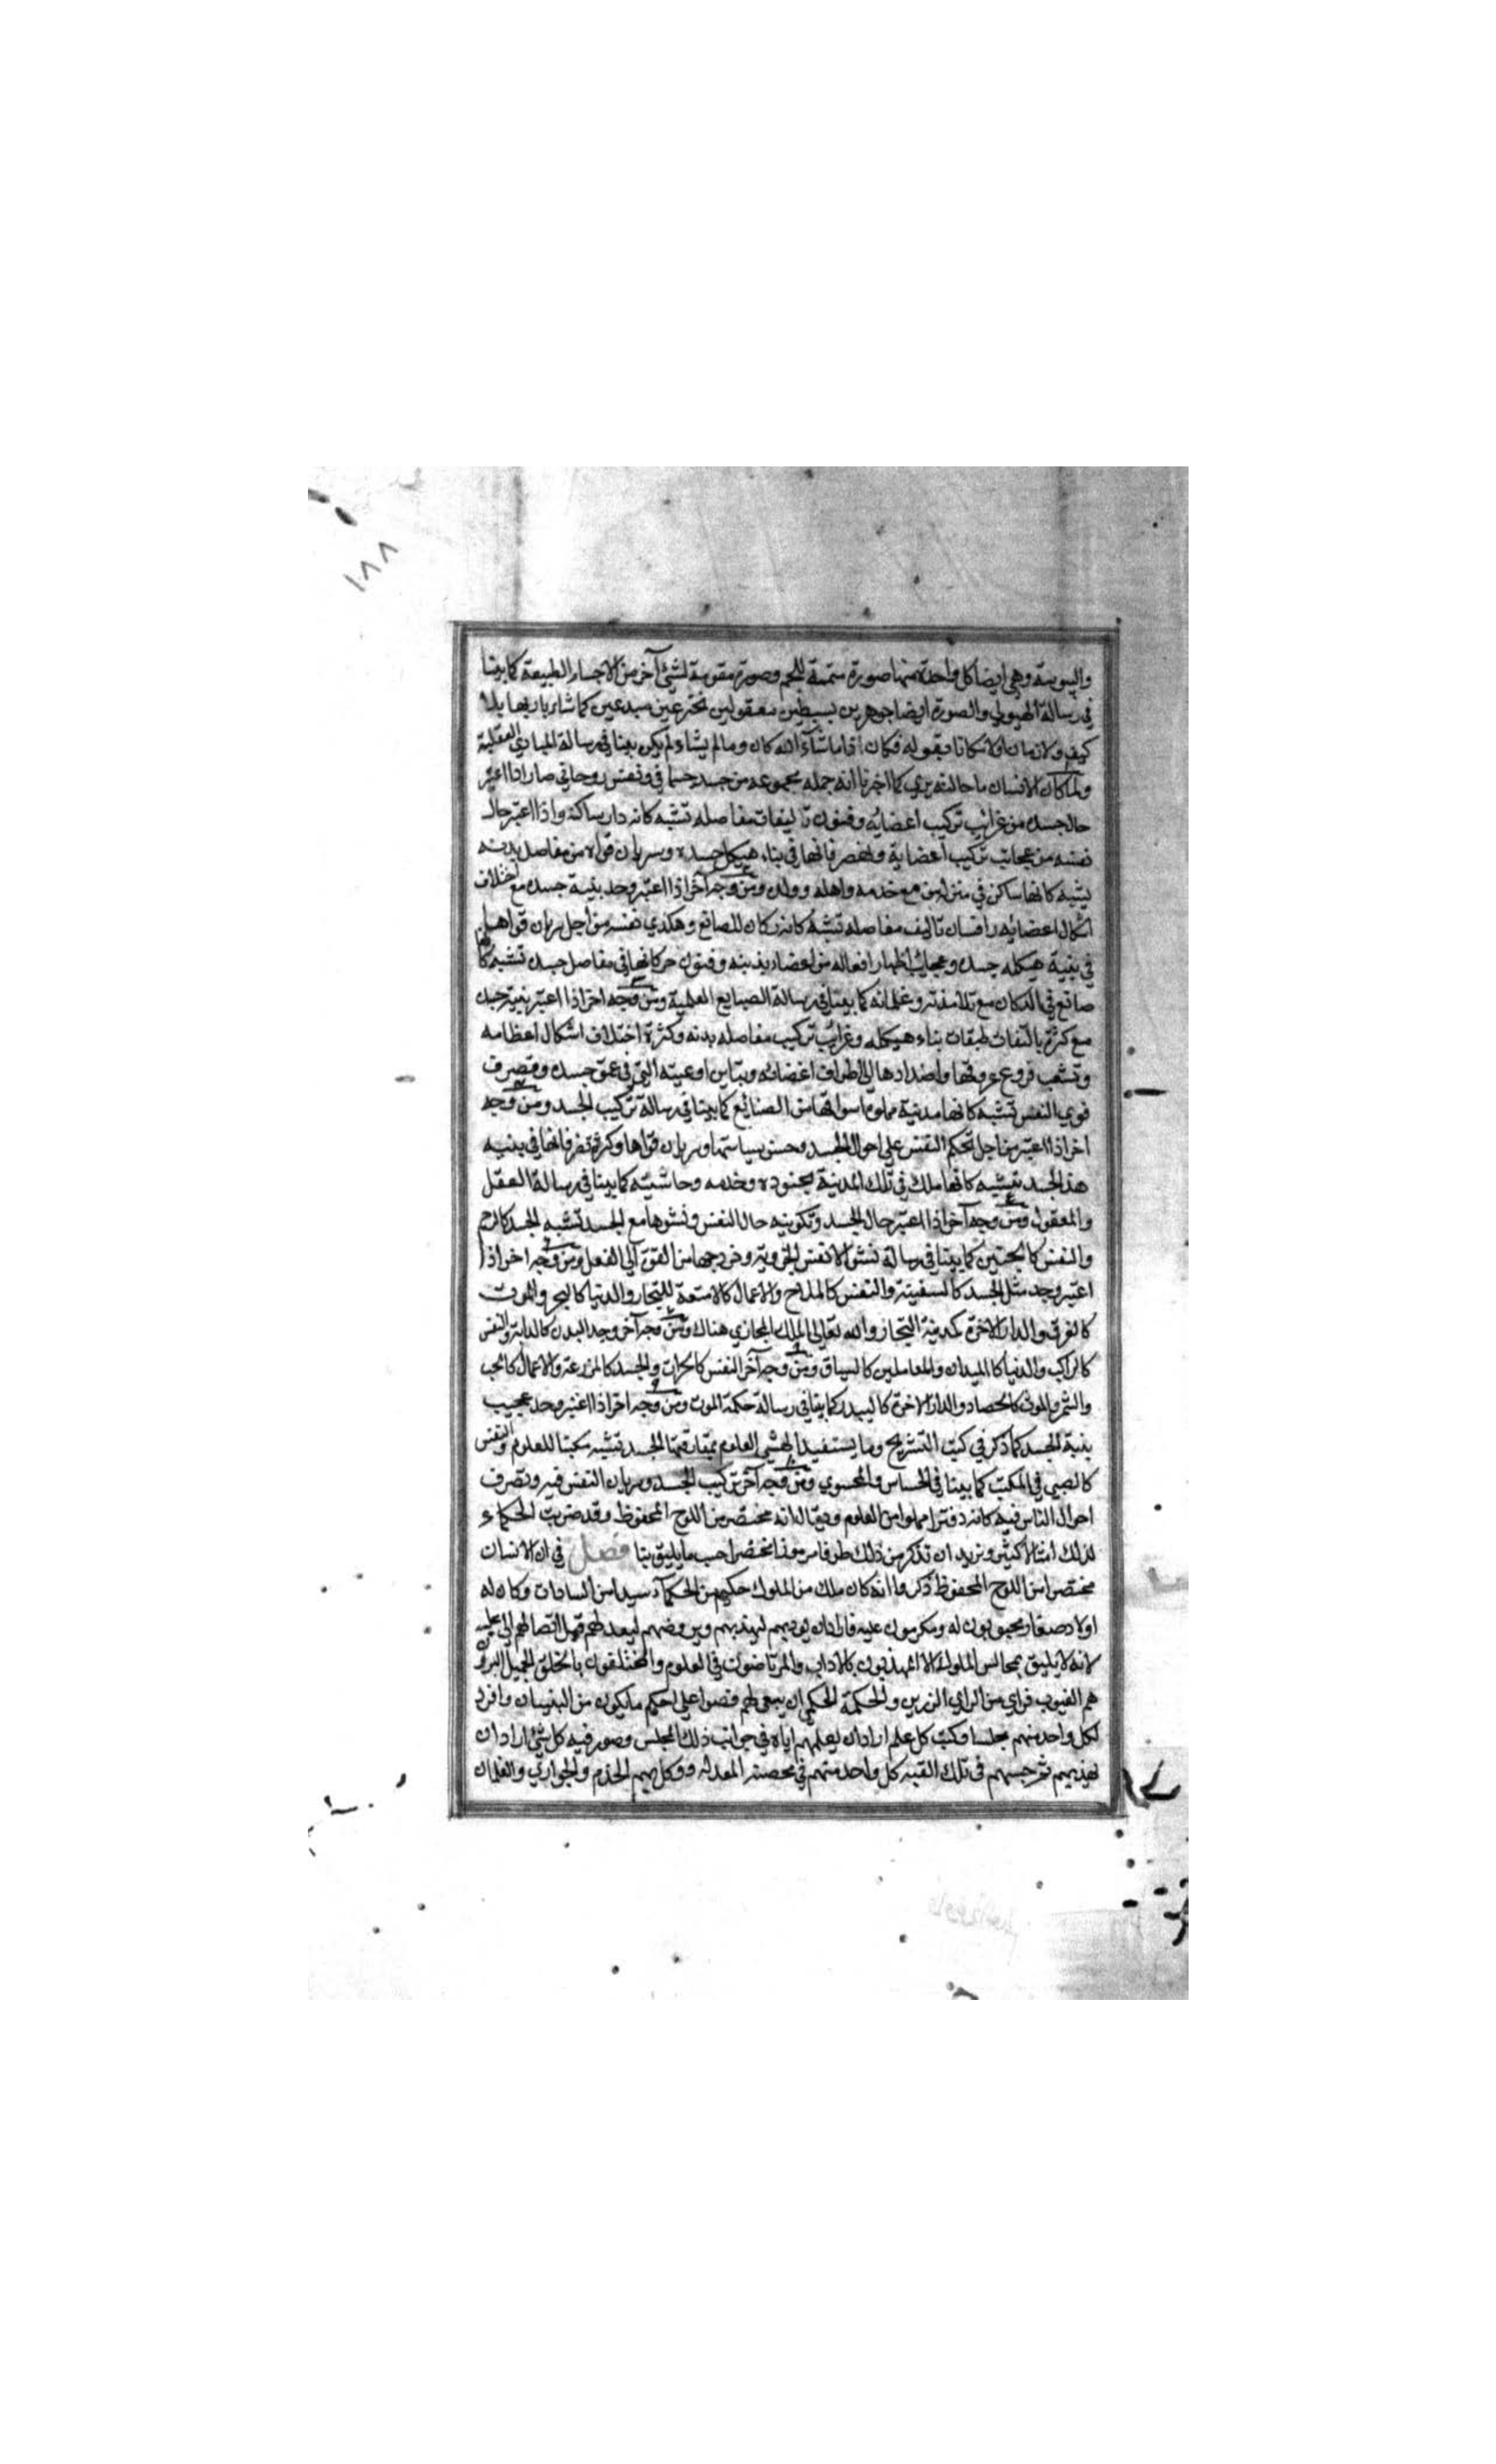 ١٨٨
واليبوسة وهي ايضا كل واحدة منها صورة متممة للجسم وصورة مقومة لشيئ آخر من الاجسام الطبيعة كما بينا
في رسالة الهيولي والصورة ايضا جوهرين بسيطين معقولين مخترعين مبدعين كما شاء باريهما بلا
كيف ولا زمان ولا مكان بقوله فكان ما شآء الله كان وما لم يشاء لم يكن بينا في رسالة المبادي العقلية
ولما كان الانسان كما اخبرنا انه جمله مجموعه من جسد جسماني ونفس روحاني صار اذا اعتبر
حال جسده من غرائب تركيب اعضائه وفنون تاليفات مفاصله تشبه كانه دار ساكنه واذا اعتبر حال
نفسه من عجائب تركيب اعضاية في بناء هيكل جسده وسريان قواه من مفاصل بدنه
يشبه كانها ساكن في منزله مع خدمه واهله وولده ومن وجه آخر اذا اعتبر وجد بنية جسده مع اختلاف
اشكال اعضائه تاليف مفاصله تشبه كانه دكان للصانع وهكذي نفسه من اجل سريان قواها
في بنية هيكله جسده وعجائب اظهار افعاله من اعضاء بدنه وفنون حركاتها في مفاصل جسده تشبه كانها
صانع في الدكان مع تلامذته وغلمانه كما بينا في رسالة الصنايع العلمية ومن وجه اخر اذا اعتبر بنية جسده
مع كثرة تاليفات طبقات بناء هيكله وغرائب تركيب مفاصله بدنه وكثرة اختلاف اشكال اعظامه
وتشعب فروع عروقها وامتدادها الي اطراف اعضائه وتباين اوعيته التي في عمق جسده وتصرف
قوي النفس تشبه كانها مدينة مملوة اسواقها من الصنائع كما بينا في رسالة تركيب الجسد ومن وجه
اخر اذا اعتبر من اجل تحكم النفس علي احوال الجسد وحسن سياستها وسريان قواها وكثرة تصرفاتها في بنيه
هذ الجسد تشبه كانها ملك في تلك المدينة بجنوده وخدمه وحاشيته كما بينا في رسالة العقل
والمعقول ومن وجه آخر اذا اعتبر حال الجسد وتكوينه حال النفس ونشوها مع الجسد تشبه الجسد كالرحم
والنفس كالجنين كما بينا في رسالة نشو الانفس الجزوية وخروجها من القوة الي الفعل ومن وجه اخر اذا
اعتبر وجد مثل الجسد كالسفينة والنفس كالملاح والاعمال كالامتعة للتجار والدنيا كالبحر والموت
كالغرق والدار الاخرة كمدينة التجار والله تعالي الملك المجازي هناك ومن وجه آخر وجد البدن كالدابة والنفس
كالراكب والدنيا كالميدان والمعاملين كالسباق ومن وجه آخر النفس كالحراث والجسد كالمزرعة والاعمال كالحب
والثمر والموت كالحصاد والدار الاخرة كالبيدر كما بينا في رسالة حكمة الموت ومن وجه اخر اذا اعتبر وجد عجيب
بنية الجسد كما ذكر في كتب التشريح وما يستفيد العلوم الجسد تشبه مكتبا للعلوم والنفس
كالصبي في المكتب كما بينا في الحساس والمحسوس ومن وجه آخر تركيب الجسد وسريان النفس فيه وتصرف
احوال الناس فيه كانه دفتر مملوا من العلوم ويقال انه مختصر من اللوح المحفوظ وقد ضربت الحكماء
لذلك امثالا كثيرة ونريد ان نذكر من ذلك طرفا مرموزا مختصرا حسب ما يليق بنا فصل في ان الانسان
مختصر من اللوح المحفوظ ذكروا انه كان ملك من الملوك حكيم من الحكمآء سيد من السادات وكان له
اولاد صغار محبوبون له ومكرمون عليه فاراد ان يودبهم ليهذبهم ويروضهم ليعدلهم قبل ايصالهم الي مجلسه
لانه لا يليق بمجالس الملوك الا المهذبون بالاداب والمرتاضون في العلوم والمتخلقون باخلاق الجميل البرؤن
هم العيوب فراي من الراي الرزين والحكمة الحكمي ان يبني لهم قصرا علي احكم ما يكون من البنيان وافرد
لكل واحد منهم مجلسا وكتب كل علم اراد ان يعلمهم اياه في جوانب ذلك المجلس وصور فيه كل شيئ اراد ان
يهذبهم ثم اجلسهم في تلك القبه كل واحد منهم في محصته المعد له ووكل بهم الخدم والجواري والغلمان